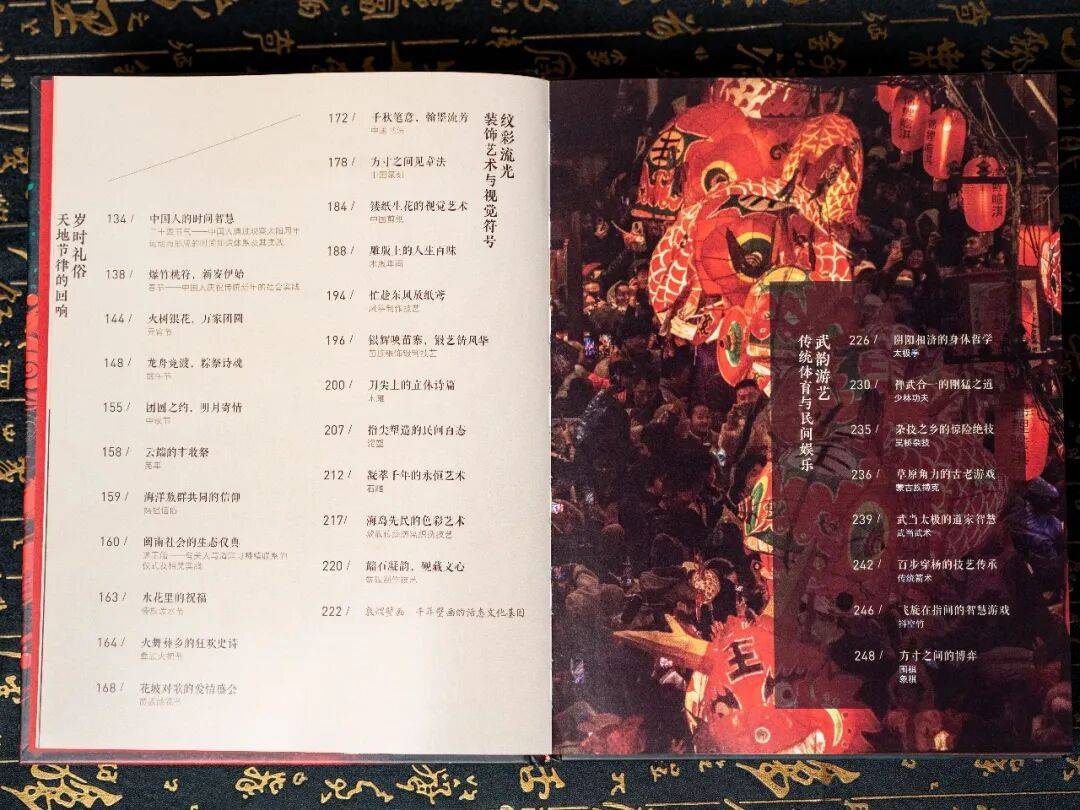 岁时礼俗
天地节律的回响
134 / 中国人的时间智慧
二十四节气——中国人通过观察太阳周年
运动而形成的时间知识体系及其实践
138 / 爆竹桃符，新岁伊始
春节——中国人庆祝传统新年的社会实践
144 / 火树银花，万家团圆
元宵节
148 / 龙舟竞渡，粽祭诗魂
端午节
155 / 团圆之约，明月寄情
中秋节
158 / 云端的丰收祭
苗年
159 / 海洋族群共同的信仰
妈祖信俗
160 / 闽南社会的生态仪典
送王船——有关人与海洋可持续联系的
仪式及相关实践
163 / 水花里的祝福
傣族泼水节
164 / 火舞彝乡的狂欢史诗
彝族火把节
168 / 花坡对歌的爱情盛会
纹彩流光
装饰艺术与视觉符号
172 / 千秋笔意，翰墨流芳
中国书法
178 / 方寸之间见章法
中国篆刻
184 / 镂纸生花的视觉艺术
中国剪纸
188 / 雕版上的人生百味
木版年画
194 / 忙趁东风放纸鸢
风筝制作技艺
196 / 银辉映苗寨，锻艺铸风华
苗族银饰锻制技艺
200 / 刀尖上的立体诗篇
木雕
207 / 指尖塑造的民间百态
泥塑
212 / 凝萃千年的永恒艺术
石雕
217/ 海岛先民的色彩艺术
黎族传统纺染织绣技艺
220 / 端石凝韵，砚藏文心
端砚制作技艺
222 / 敦煌壁画 千年壁画的活态文化基因
武韵游艺
传统体育与民间娱乐
226 / 阴阳相济的身体哲学
太极拳
230 / 禅武合一的刚猛之道
少林功夫
235 / 杂技之乡的惊险绝技
吴桥杂技
236 / 草原角力的古老游戏
蒙古族搏克
239 / 武当太极的道家智慧
武当武术
242 / 百步穿杨的技艺传承
传统箭术
246 / 飞旋在指间的智慧游戏
抖空竹
248 / 方寸之间的博弈
围棋
象棋
王